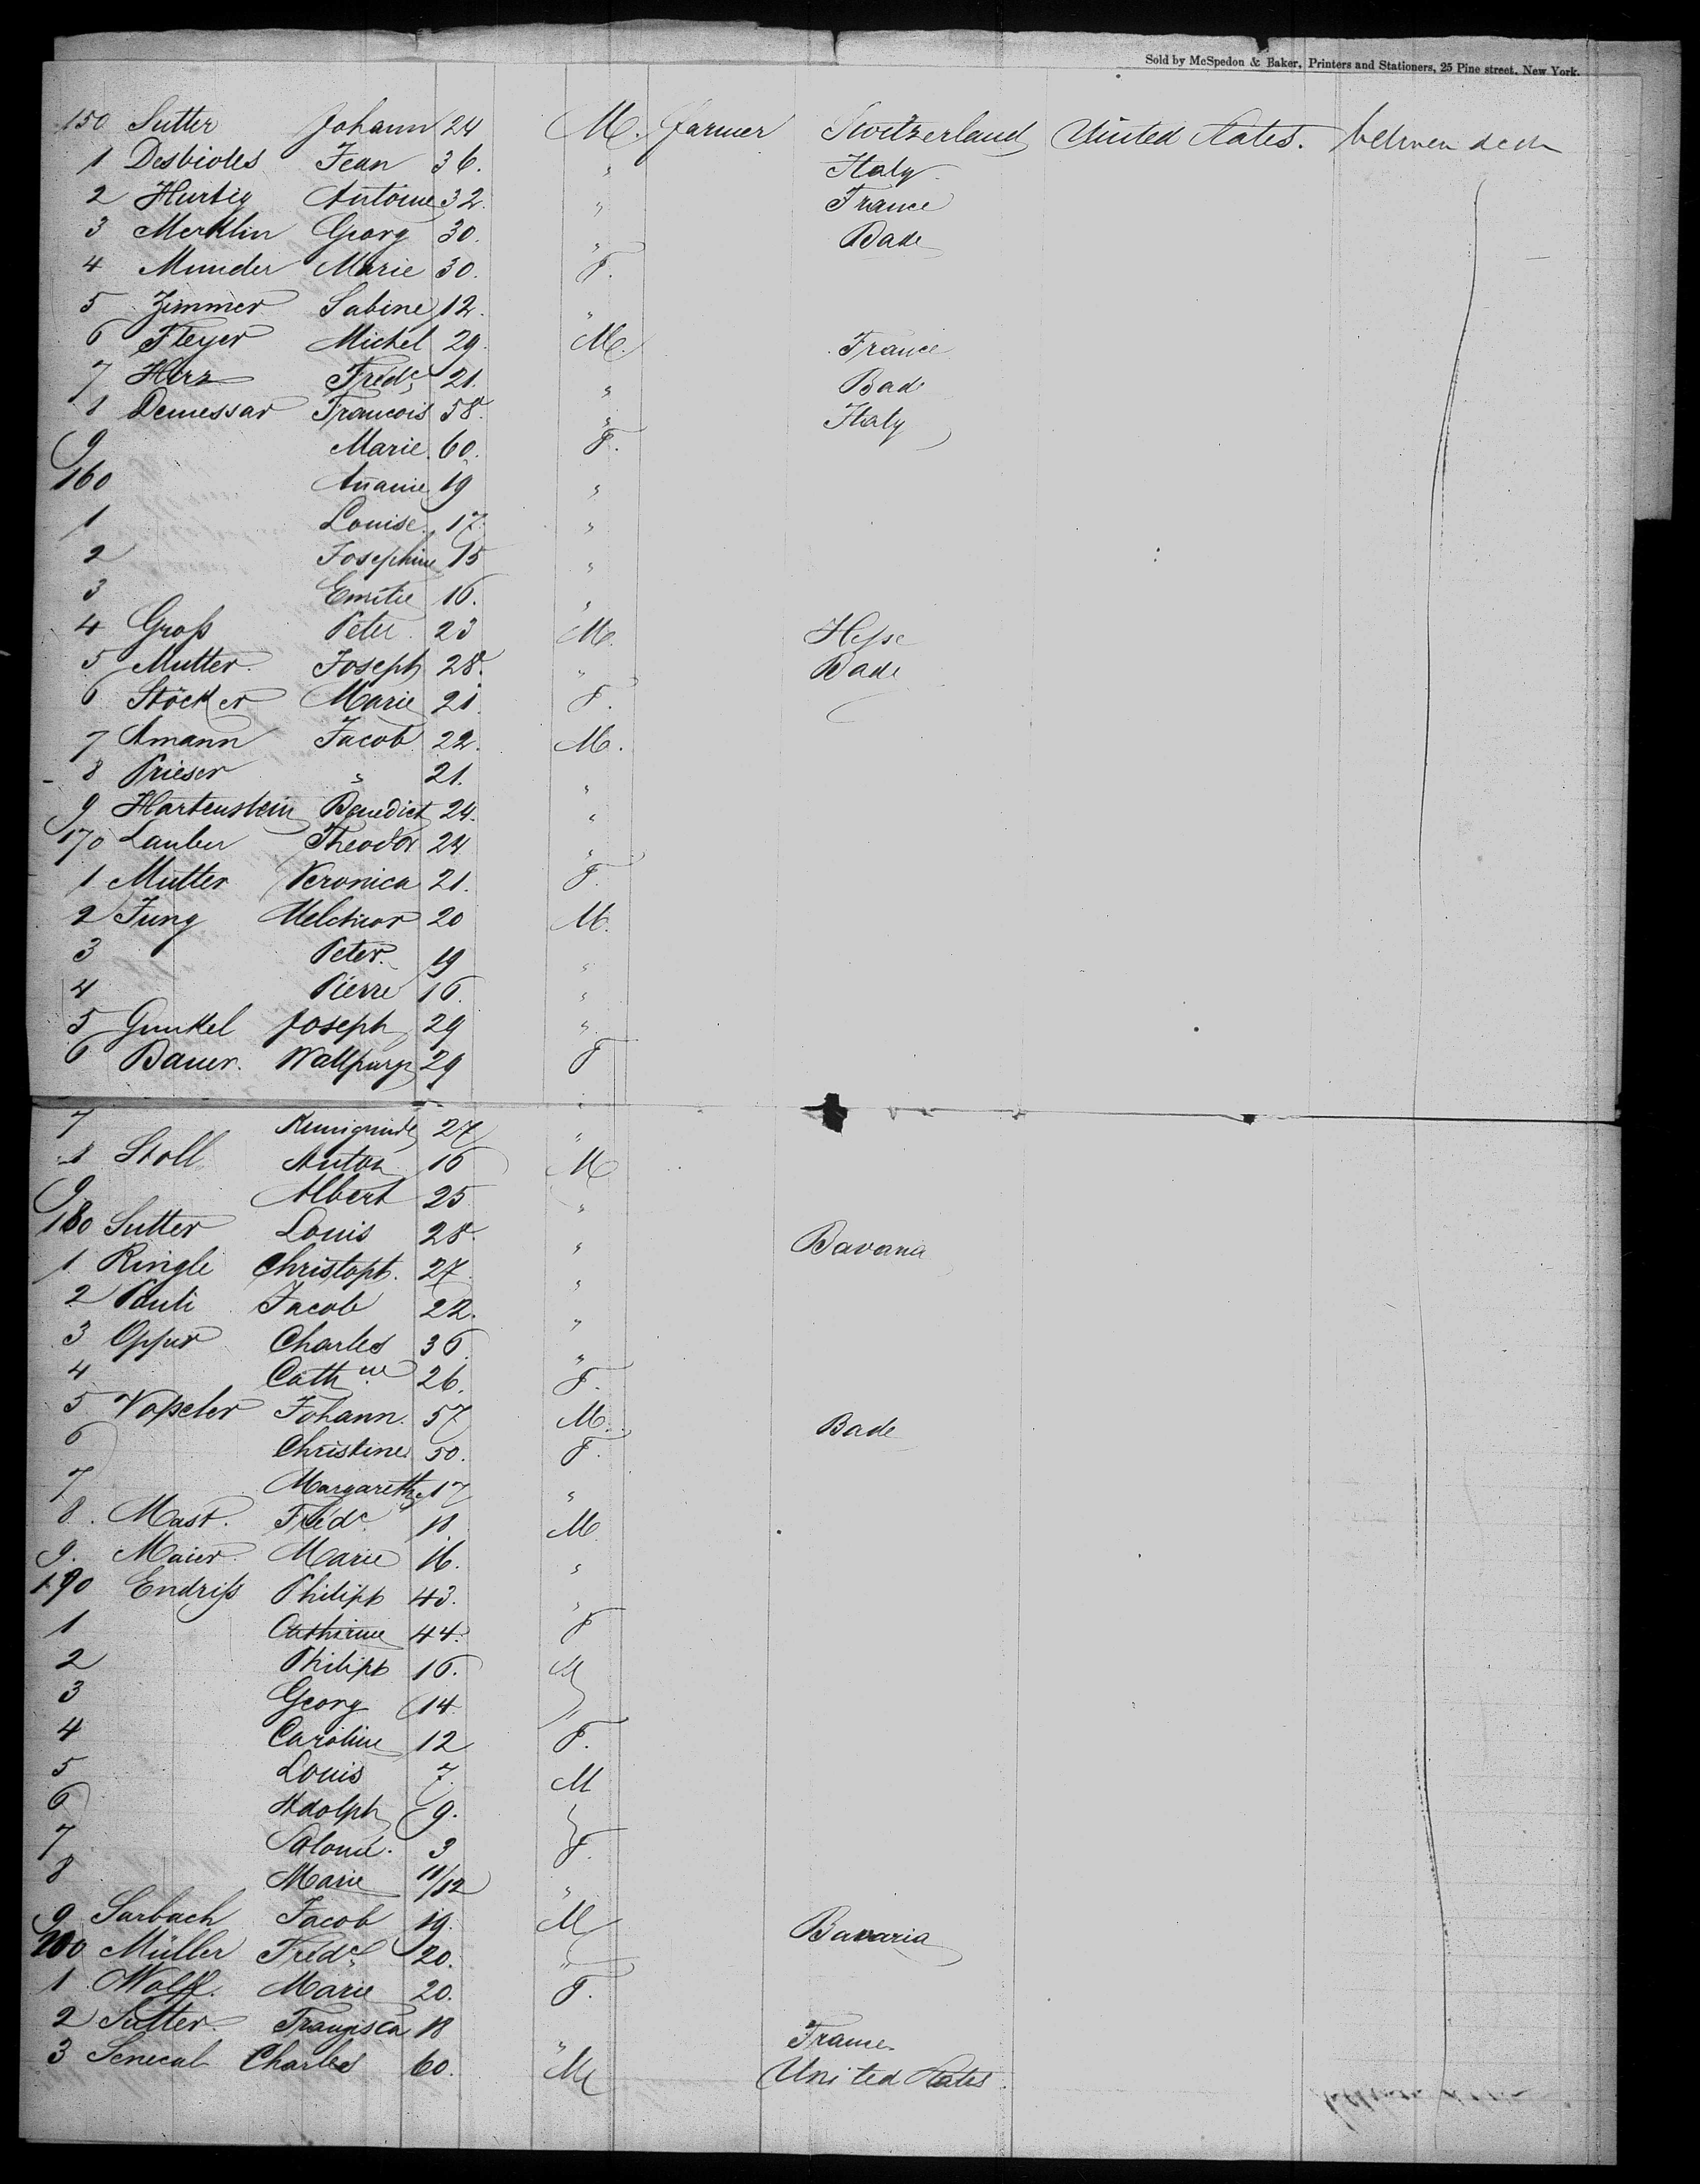 Sold by McSpedon & Baker, Printers and Stationers, 25 Pine street, New York.
150 Sutter Johann 24 M. farmer Switzerland United States. between deck
1 Desbioles Jean 36. " Italy
2 Hurtig Antoine 32. " France
3 Merklin Georg 30. " Bade
4 Munder Marie 30. F.
5 Zimmer Sabine 12. "
6 Fleyer Michel 29. M. France
7 Herz Fredc 21. " Bade
8 Demessar Francois 58. " Italy
9 Marie 60. F.
160 19 "
1 Louise 17. "
2 Josephine 15 "
3 Emilie 16. "
4 Groß Peter 23 M. Hesse
5 Mutter Joseph 28. " Bade
6 Stöcker Marie 21. F.
7 Amann Jacob 22. M.
8 Prieser " 21. "
9 Hartenstein Benedict 24. "
170 Lauber Theodor 24 "
1 Mutter Veronica 21. F.
2 Jung Melchior 20 M.
3 Peter 19 "
4 Pierre 16. "
5 Gunkel Joseph 29 "
6 Bauer. Wallpurg 29 F
7 Kunigunde 27 "
8 Stoll Anton 16 M
9 Albert 25 "
180 Sutter Louis 28. " Bavaria
1 Ringle Christoph. 27 "
2 Pauli Jacob 22. "
3 Charles 36. "
4 Cathne 26. F.
5 Voßeler Johann. 57 M. Bade
6 Christine 50. F.
7 Margarethe 17 "
8. Mast. Fredc 18 M
9. Maier Marie 16. "
190 Endriß Philipp 43. "
1 Catherine 44. F
2 Philipp 16. M
3 Georg 14
4 Caroline 12 F.
5 Louis 7. M
6 Adolph 9.
7 Salomé. 3 F.
8 Marie 11/12 "
9 Sarbach Jacob 19. M Bavaria
200 Müller Fredc 20. "
1 Wolff. Marie 20. F.
2 Sutter Franzisca 18 " France
3 Senecal Charles 60. M United States.